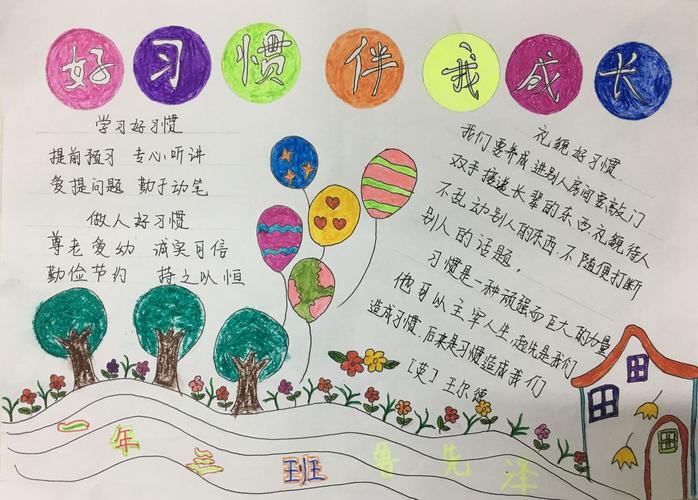 好习惯伴我成长
学习好习惯
提前预习 专心听讲
爱提问题 勤于动笔
做人好习惯
尊老爱幼 诚实可信
勤俭节约 持之以恒
礼貌好习惯.
我们要养成进别人房间要敲门
双手接递长辈的东西,礼貌待人
不乱动别人的东西,不随便打断
别人的话题。
习惯是一种顽强而巨大的力量
他可以主宰人生,起先是我们
造成习惯,后来是习惯造成我们
[英]王尔德
一年三班 鲁先泽